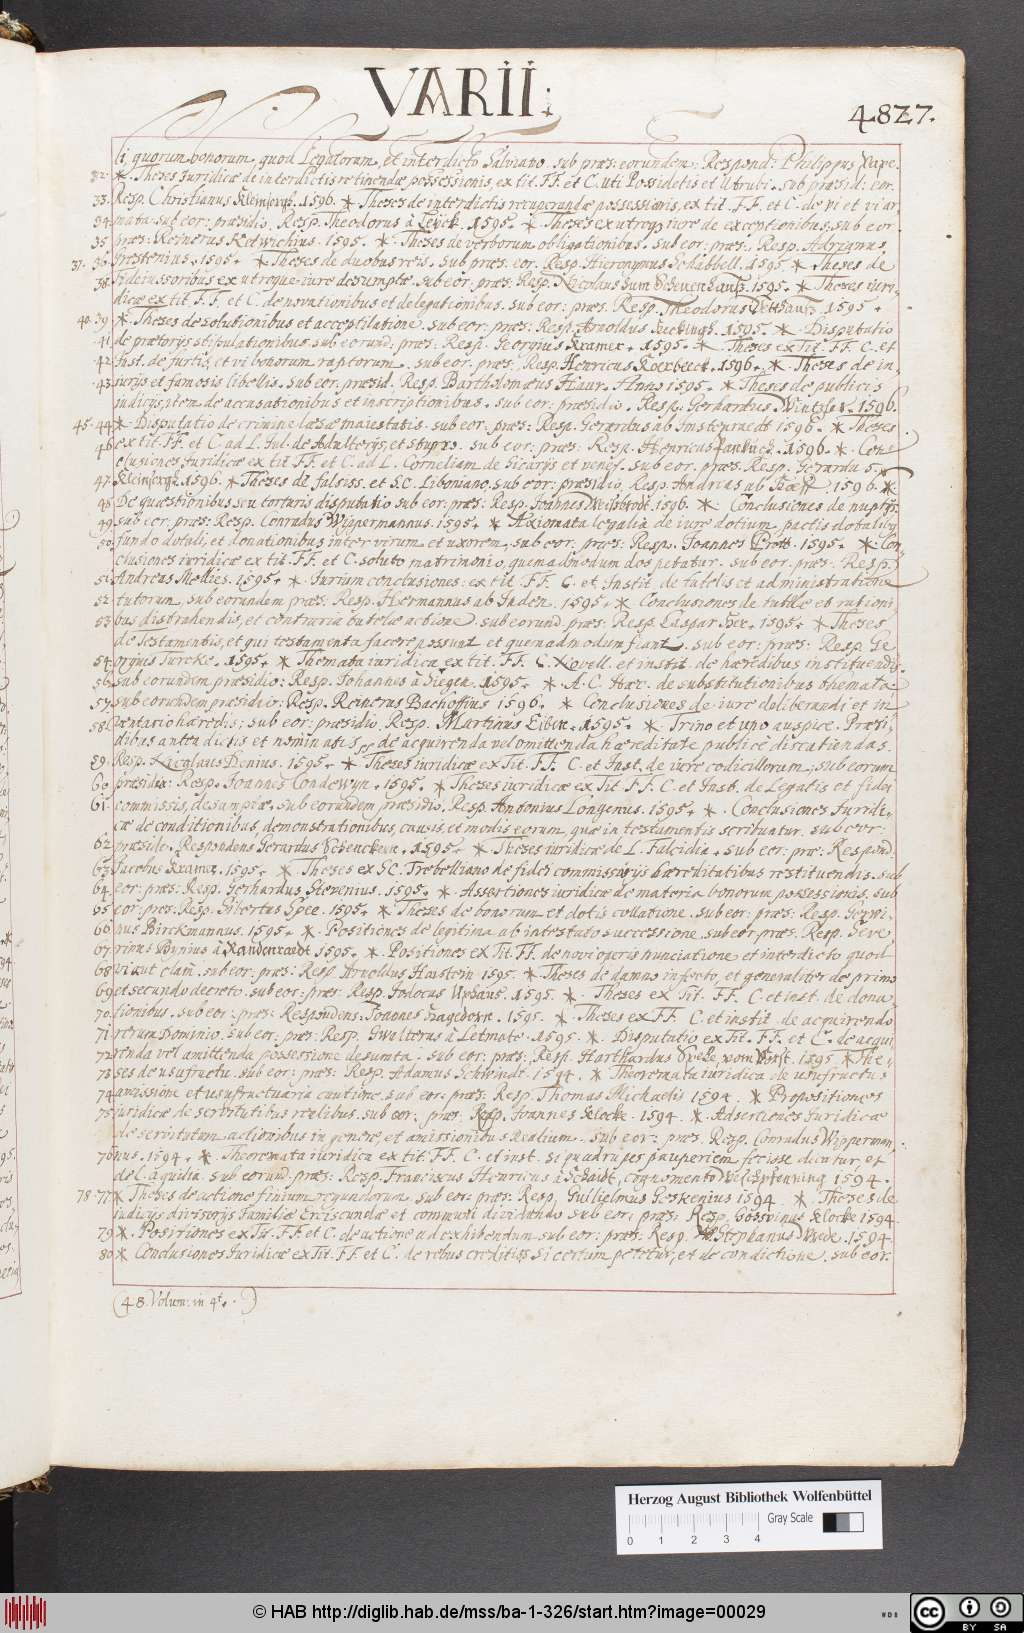 VARII:
4827.
li, quorum bonorum, quod Legatorum, et interdicto Salviano sub præs: eorundem: Respond: Philippus
32. * Theses Juridicæ de interdictis retinendæ possessionis, ex tit. FF. et C. Uti Possidetis et Utrubi. sub præsid: eor.
33. Resp. Christianus 1596. * Theses de interdictis recuperandæ possessionis, ex tit. FF. et C. de vi et vi ar,
34. mata. sub eor: præsidio. Resp. Theodorus à 1595. * Theses ex utroq iure de exceptionibus, sub eor
35. præs: Reinerus Rotwichius. 1595. * Theses de verborum obligationibus. sub eor: præs: Resp. Adrianus
37. 36. 1595. * Theses de duobus reis. sub præs: eor. Resp. Hieronymus Schabbell. 1595 * Theses de
38. Fideiussoribus ex utroque iure desumptæ. sub eor: præs: Resp. Nicolaus 1595. * Theses iuri-
dicæ ex tit. FF. et C. de novationibus et delegationibus. sub eor: præs. Resp. Theodorus 1595.
40. 39. * Theses de solutionibus et acceptilatione. sub eor: præs: Resp. Arnoldus 1595. * Disputatio
41. de prætorijs stipulationibus. sub eorund: præs: Resp. Georgius 1595. * Theses ex Tit. FF. C. et
42. Inst. de furtis, et vi bonorum raptorum. sub eor. præs: Resp. Henricus 1596. * Theses de in-
43. iurijs et famosis libellis. sub eor. præsid. Resp. Bartholomæus Haur. Anno 1595. * Theses de publicis
iudicijs, item de accusationibus et inscriptionibus. sub eor: præsidio. Resp. Gerhardus Wintzler. 1596.
45. 44. * Disputatio de crimine læsæ maiestatis. sub eor: præs: Resp. Gerardus ab Imstenraedt 1596. * Theses
46. ex tit. FF. et C. ad L. Iul. de Adulterijs et stupro. sub eor: præs: Resp. Henricus 1596. * Con-
clusiones Iuridicæ ex tit. FF. et C. ad L. Corneliam de Sicarijs et venef. sub eor. præs. Resp. Gerardus
47. 1596. * Theses de falsis, et S.C. Liboniano. sub eor: præsidio. Resp. Andreas ab 1596. *
48. De quæstionibus seu torturis disputatio sub eor: præs: Resp. Joannes 1596. * Conclusiones de nuptijs.
49. sub eor: præs: Resp. Conradus Wippermannus. 1595. * Axiomata legalia de iure dotium, pactis dotalibus
50. fundo dotali, et donationibus inter virum et uxorem, sub eor. præs: Resp. Joannes Prott. 1595. * Con,
clusiones iuridicæ ex tit. FF. et C. soluto matrimonio, quemadmodum dos petatur. sub eor. præs: Resp.
51. Andreas Mollies. 1595. * Jurium conclusiones: ex tit. FF. C. et Instit. de tutelis et administratione
52. tutorum, sub eorundem præs: Resp. Hermannus ab Inden. 1595. * Conclusiones de tutelæ et rationi,
53. bus distrahendis, et contraria tutelæ actione. sub eorund. præs: Resp. Caspar 1595. * Theses
de testamentis, et qui testamenta facere possunt et quemadmodum fiant. sub eor: præs: Resp. Ge
54. orgius Turcke. 1595. * Themata iuridica ex tit. FF. C. Novell. et instit. de hæredibus instituendis
56. sub eorundem præsidio: Resp. Johannes à Siegen. 1595. * A. C. Hæc. de substitutionibus themata
57. sub eorundem præsidio: Resp. Reinerus Bachoffius 1596. * Conclusiones de iure deliberandi et in
58. ventario hæredis; sub eor: præsidio. Resp. Martinus 1595. * Trino et uno auspice. Præsi,
dibus antea dictis et nominatis, de acquirenda vel omittenda hæreditate publicè discutiendas.
59. Resp. Nicolaus Denius. 1595. * Theses iuridicæ ex Tit. FF. C. et Inst. de iure codicillorum; sub eorum
60. præsidio: Resp. Joannes Londewyn. 1595. * Theses iuridicæ ex Tit FF. C. et Inst. de Legatis et fidei
61. commissis, desumptæ. sub eorundem præsidio. Resp. Antonius Longenus. 1595. * Conclusiones Iuridi-
cæ de conditionibus, demonstrationibus, causis, et modis eorum, quæ in testamentis scribuntur. sub eor:
62. præside. Respondens Gerardus 1595. * Theses iuridicæ de L. Falcidia. sub eor: præ: Respond:
63. Jacobus 1595. * Theses ex SC. Trebelliano de fidei commissarijs hæreditatibus restituendis. sub
64. eor: præs: Resp. Gerhardus Stevenius. 1595. * Assertiones iuridicæ de materia bonorum possessionis, sub
65. eor: pres. Resp. Sibertus Spee. 1595. * Theses de bonorum et dotis collatione. sub eor: præs: Resp. Gerwi-
66. nus Birckmannus. 1595. * Positiones de legitima ab intestato successione. sub eor præs. Resp. Seve
67. rinus Bynius à Randenraedt 1595. * Positiones ex Tit. FF. de novi operis nunciatione et interdicto quod
68. vi aut clam. sub eor: præs: Resp. Arnoldus Holstein 1595. * Theses de damno infecto, et generaliter de primo
69. et secundo decreto. sub eor: præs: Resp. Jodocus 1595. * Theses ex Tit. FF. C. et inst. de dona
70. tionibus. sub eor: præs: Respondens. Joannes Hagedorn. 1595. * Theses ex FF. C. et instit. de acquirendo
71. rerum Dominio. sub eor: præs: Resp. Gwalterus à Letmate. 1595. * Disputatio ex Tit. FF. et C. de acqui
72. renda vel amittenda possessione desumta. sub eor: præs: Resp. Harthardus vom 1595 * The-
73. ses de usufructu. sub eor: præs: Resp. Adamus Schwindt. 1594. * Theoremata iuridica de usufructus
74. amissione et usufructuaria cautione. sub eor: præs: Resp. Thomas Michaelis 1594. * Propositiones
75. iuridicæ de servitutibus realibus. sub eor: præs: Resp. Joannes Klocke. 1594. * Adsertiones Juridicæ
de servitutum actionibus in genere, et amissionibus Realium. sub eor: præs. Resp. Conradus Wipperman,
76. nus. 1594. * Theoremata iuridica ex tit: FF. C. et inst. si quadrupes pauperiem fecisse dicatur, et
de L. aquilia. sub eorund. præs: Resp. Franciscus Henricus à Scheidt, cognomento 1594.
78. 77. * Theses de actione finium regundorum. sub eor: præs: Resp, Guilielmus Goskenius 1594 * Theses de
iudicijs divisorijs Familiæ Erciscundæ et communi dividundo sub eor: præs: Resp. Gosvinus Klocke 1594.
79. * Positiones ex Tit. FF. et C. de actione ad exhibendum. sub eor: præs: Resp. Stephanus Wede. 1594.
80. * Conclusiones Juridicæ ex Tit. FF. et C. de rebus creditis, si certum petetur, et de condictione. sub eor.
(48. Volum: in 4t.)
Herzog August Bibliothek Wolfenbüttel
Gray Scale
0 1 2 3 4
© HAB http://diglib.hab.de/mss/ba-1-326/start.htm?image=00029
cc BY SA